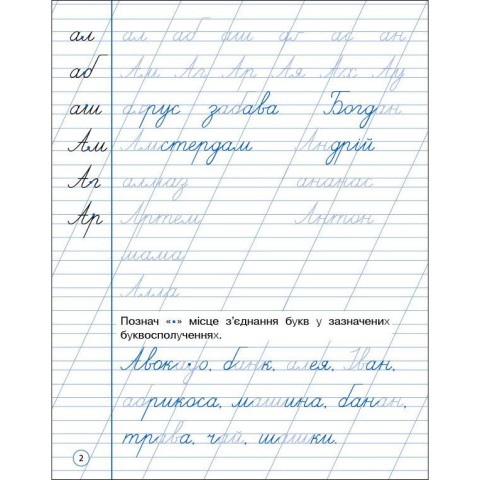 ал ал аб аш аб ан
аб Ам Аг Ар Ая Ах Ау
аш аґрус забава Богдан
Ам Амстердам Андрій
Аг алмаз ананас
Ар Артем Антон
мама
Алла
Познач «•» місце з'єднання букв у зазначених
буквосполученнях.
Авокадо, банк, алея, Іван,
абрикоса, машина, банан,
трава, чай, шашки.
2